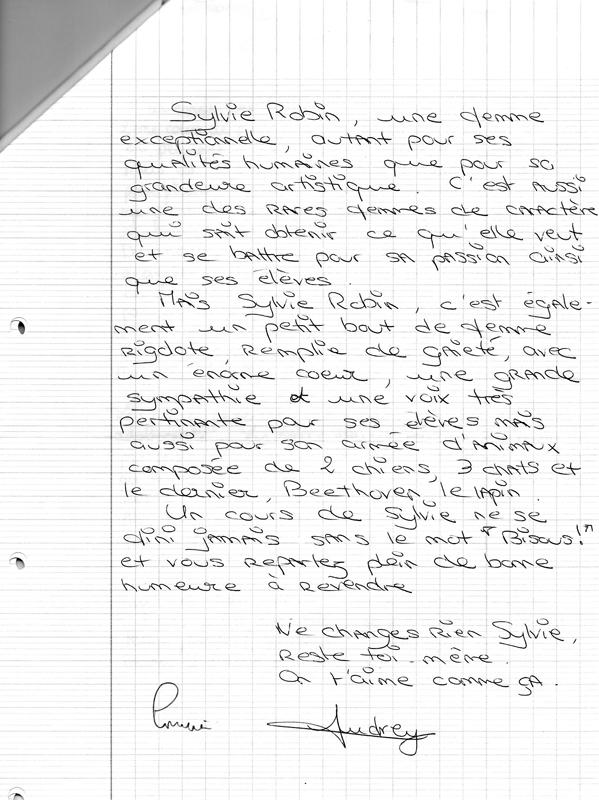 Sylvie Robin, une femme
exceptionnelle, autant pour ses
qualités humaines que pour sa
grandeure artistique. C'est aussi
une des rares femmes de caractère
qui sait obtenir ce qu'elle veut
et se battre pour sa passion ainsi
que ses élèves.
Mais Sylvie Robin, c'est égale-
ment un petit bout de femme
rigolote, remplie de gaieté, avec
un énorme coeur, une grande
sympathie et une voix très
pertinante pour ses élèves mais
aussi pour son armée d'animaux
composée de 2 chiens, 3 chats et
le dernier, Beethoven, le lapin.
Un cours de Sylvie ne se
fini jamais sans le mot "Bisous!"
et vous repartez plein de bonne
humeure à revendre
Ne changes rien Sylvie,
reste toi-même.
On t'aime comme ça.
Audrey